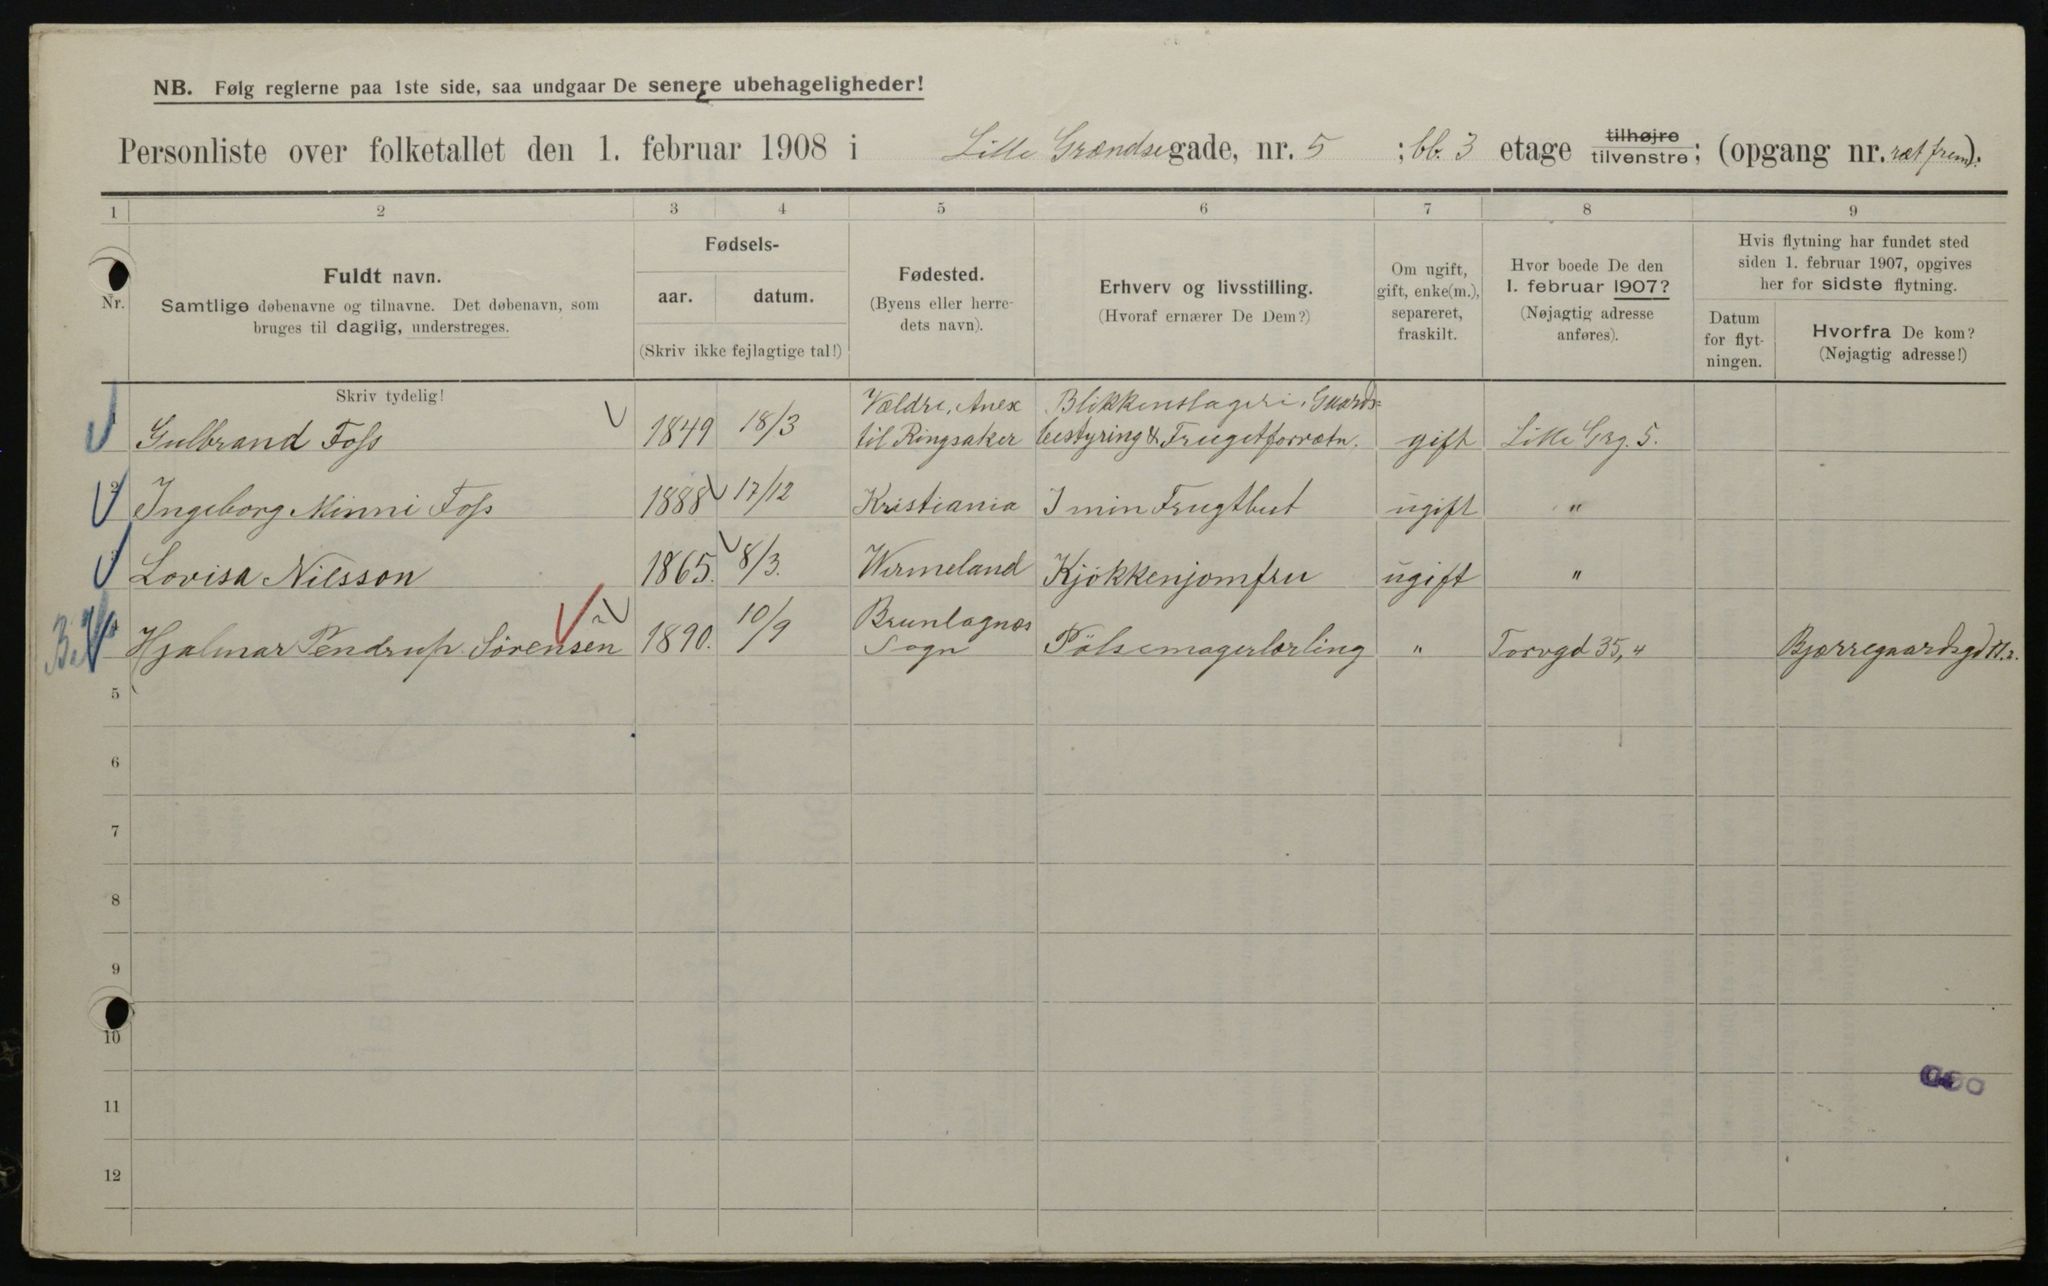 NB. Følg reglerne paa 1ste side, saa undgaar De senere ubehageligheder!
Personliste over folketallet den 1. februar 1908 i Lille Grændsegade, nr. 5 ; bb. 3 etage tilhøjre tilvenstre; (opgang nr. ret frem).
1 2 3 4 5 6 7 8 9
Nr.
Fuldt navn.
Samtlige døbenavne og tilnavne. Det døbenavn, som
bruges til daglig, understreges.
Fødsels-
aar. datum.
(Skriv ikke fejlagtige tal!)
Fødested.
(Byens eller herre-
dets navn).
Erhverv og livsstilling.
(Hvoraf ernærer De Dem?)
Om ugift,
gift, enke(m.),
separeret,
fraskilt.
Hvor boede De den
1. februar 1907?
(Nøjagtig adresse
anføres).
Hvis flytning har fundet sted
siden 1. februar 1907, opgives
her for sidste flytning.
Datum
for flyt-
ningen.
Hvorfra De kom?
(Nøjagtig adresse!)
Skriv tydelig!
Vældre, Anex Blikkenslageri, Gaards-
1 Gulbrand Foss 1849 18/3 til Ringsaker bestyring & Frugtforretn. gift Lille Grg. 5.
2 Ingeborg Minni Foss 1888 17/12 Kristiania I min Frugtbut ugift "
3 Lovisa Nilsson 1865. 8/3. Wermeland Kjøkkenjomfru ugift "
Brunlagnæs
4 Hjalmar Pendrup Sørensen 1890. 10/9 Sogn Pølsemagerlærling " Torvgd 35, 4 Bjærregaardsgd 11. 2.
5
6
7
8
9
10
11
12